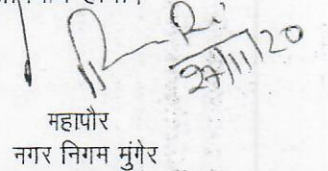 27/11/20
महापौर
नगर निगम मुंगेर